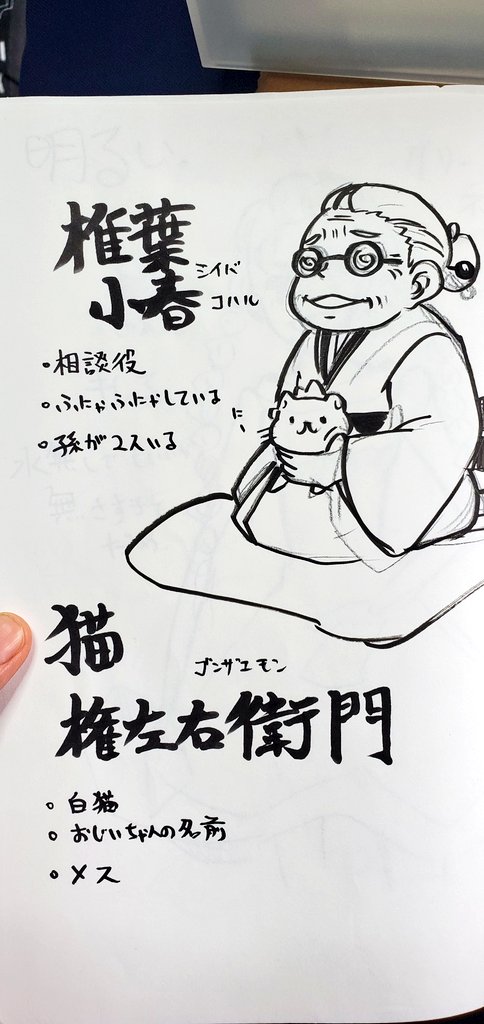 明るい
椎葉
シイバ
小春
コハル
・相談役
・ふにゃふにゃしている
・孫が2人いる
に
猫
ゴンザエモン
権左右衛門
。白猫
。おじいちゃんの名前
。メス